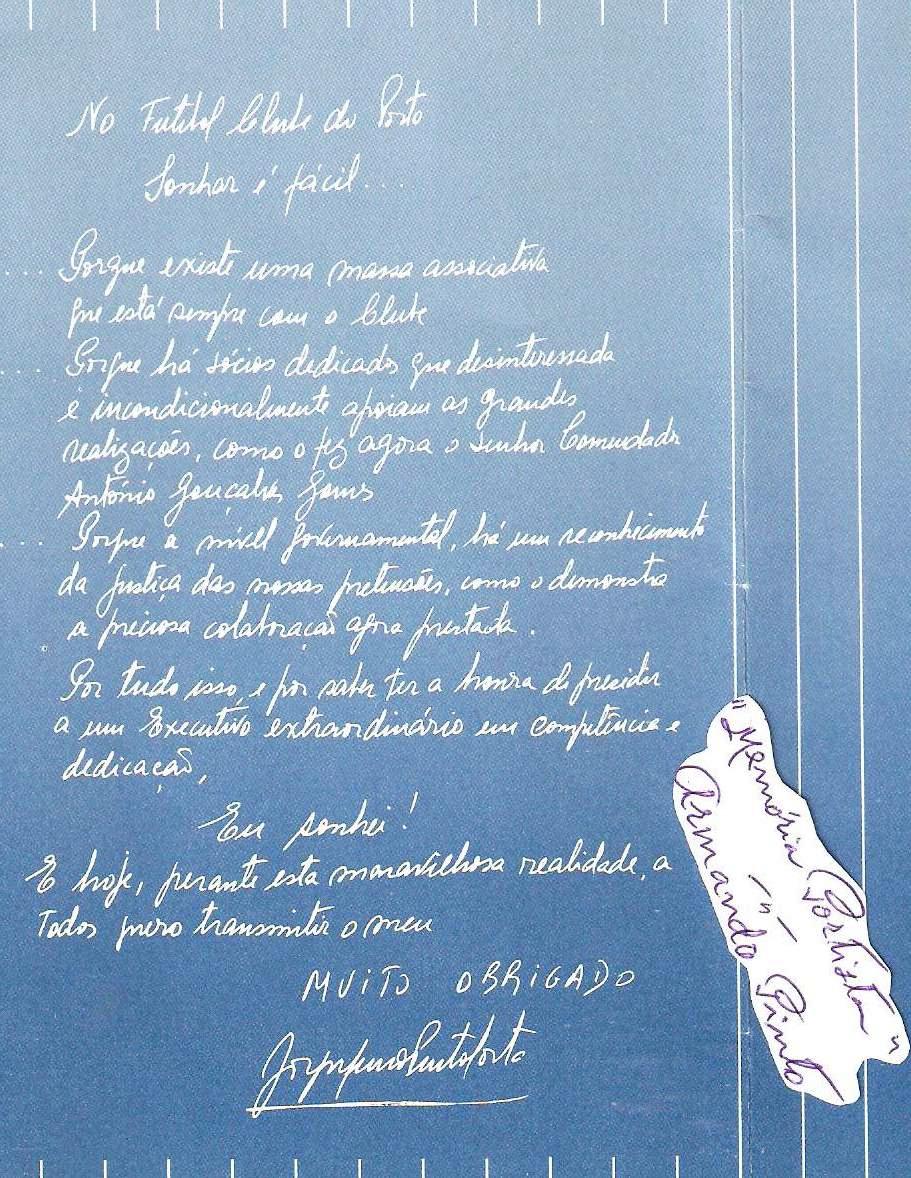 No Futebol Clube do Porto
Sonhar é fácil....
.... Porque existe uma massa associativa
que está sempre com o Clube
.... Porque há sócios dedicados que desinteressada
e incondicionalmente apoiam as grandes
realizações, como o fez agora o senhor Comendador
António Gonçalves Gomes
.... Porque a nível governamental, há um reconhecimento
da justiça das nossas pretensões, como o demonstra
a preciosa colaboração agora prestada.
Por tudo isso, e por saber ter a honra de presidir
a um Executivo extraordinário em competência e
dedicação,
Eu sonhei!
E hoje, perante esta maravilhosa realidade, a
Todos quero transmitir o meu
MUITO OBRIGADO
"Memória Portista"
Armando Pinto